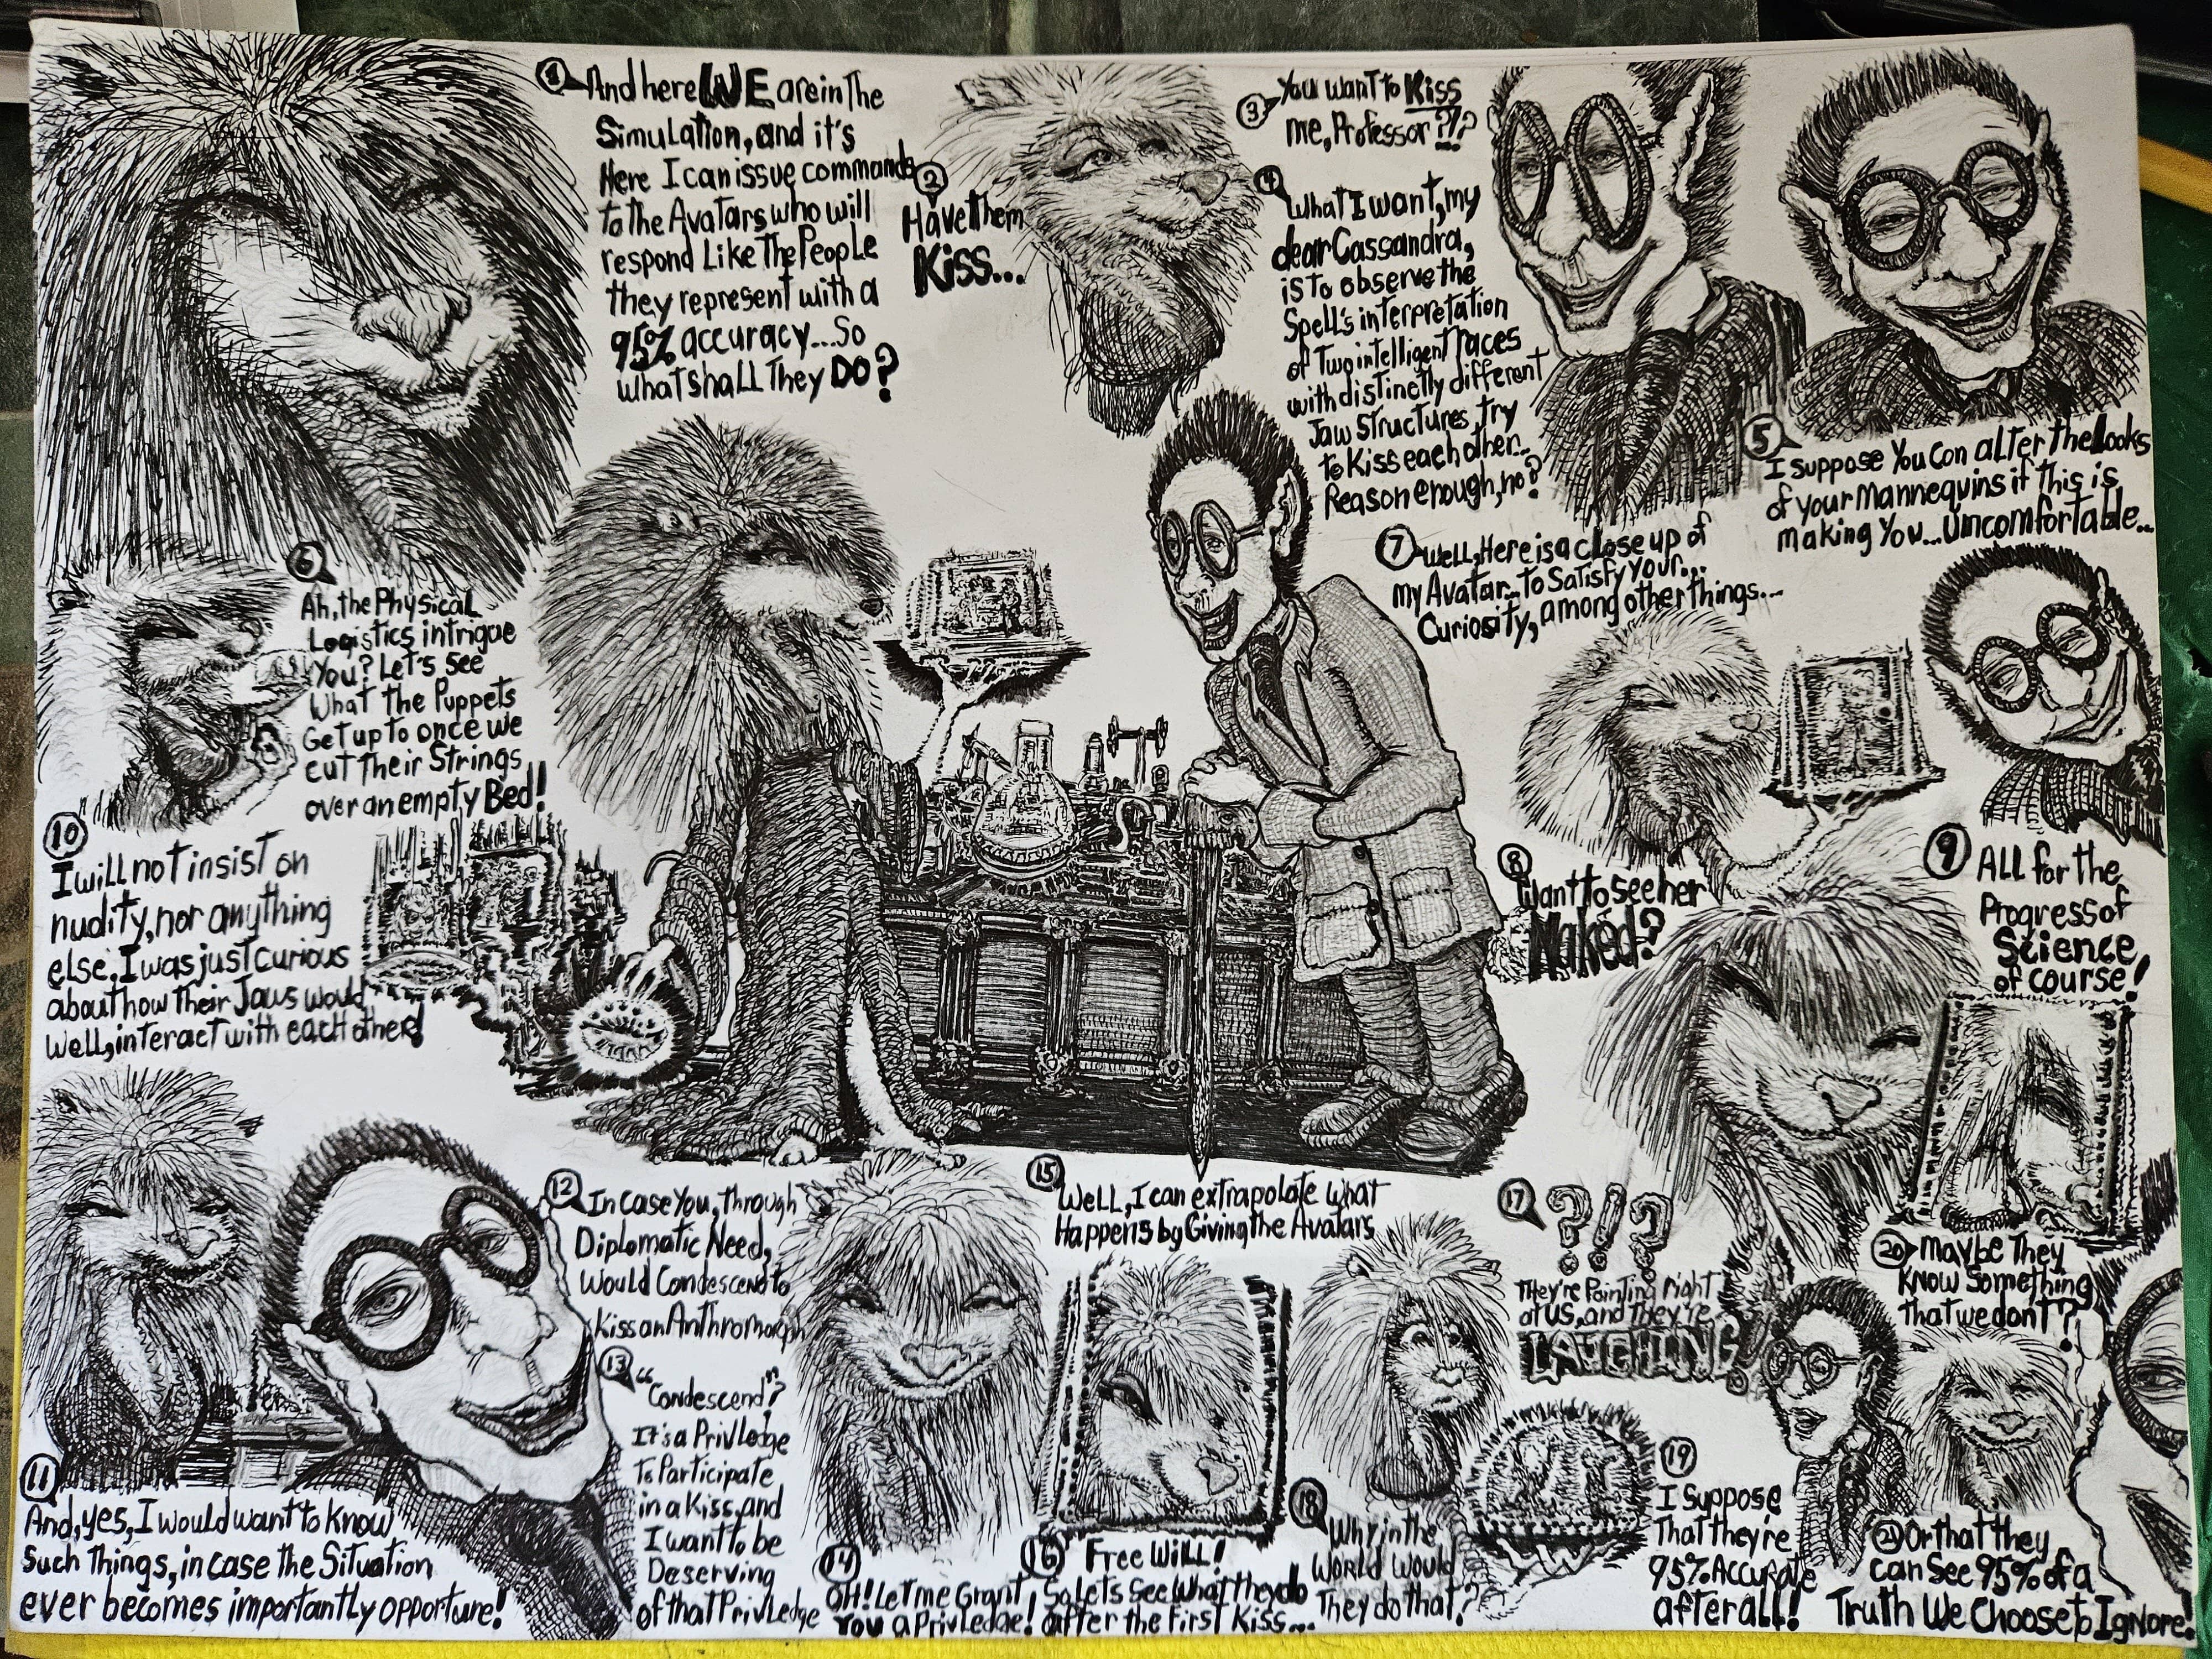 1
And here WE are in The
Simulation, and it's
Here I can issue commands
to the Avatars who will
respond Like The People
they represent with a
95% accuracy....So
what shall They DO?
2
Have Them
Kiss...
3
You want to Kiss
me, Professor?!?
4
What I want, my
dear Cassandra,
is to observe the
Spell's interpretation
of Two intelligent races
with distinctly different
Jaw Structures, try
to Kiss each other...
Reason enough, no?
5
I suppose You Can alter the Looks
of your Mannequins if this is
making You... Uncomfortable...
6
Ah, the Physical
Logistics intrigue
You? Let's see
What the Puppets
Get up to once we
cut their Strings
over an empty Bed!
7
Well, Here is a close up of
my Avatar... to Satisfy your...
Curiosity, among other things...
8
Want to see her
Naked?
9
ALL for the
Progress of
Science,
of course!
10
I will not insist on
nudity, nor anything
else, I was just curious
about how Their Jaws would,
Well, interact with each other!
11
And, yes, I would want to know
Such Things, in case the Situation
ever becomes importantly opportune!
12
In case You, through
Diplomatic Need,
would Condescend to
kiss an Anthromorph
13
"Condescend"?
It's a Privledge
To Participate
in a Kiss, and
I want to be
Deserving
of that Privledge
14
OH! Let me Grant
You a Privledge!
15
Well, I can extrapolate what
Happens by Giving the Avatars
16
Free Will!
So Lets See What they do
after the First Kiss...
17
?!?
They're Pointing right
at US, and they're
LAUGHING!
18
Why in the
WORLD would
They do that?
19
I Suppose
That they're
95% Accurate
after all!
20
Maybe They
Know Something
that we dont?
21
Or that they
can See 95% of a
Truth We Choose to Ignore!